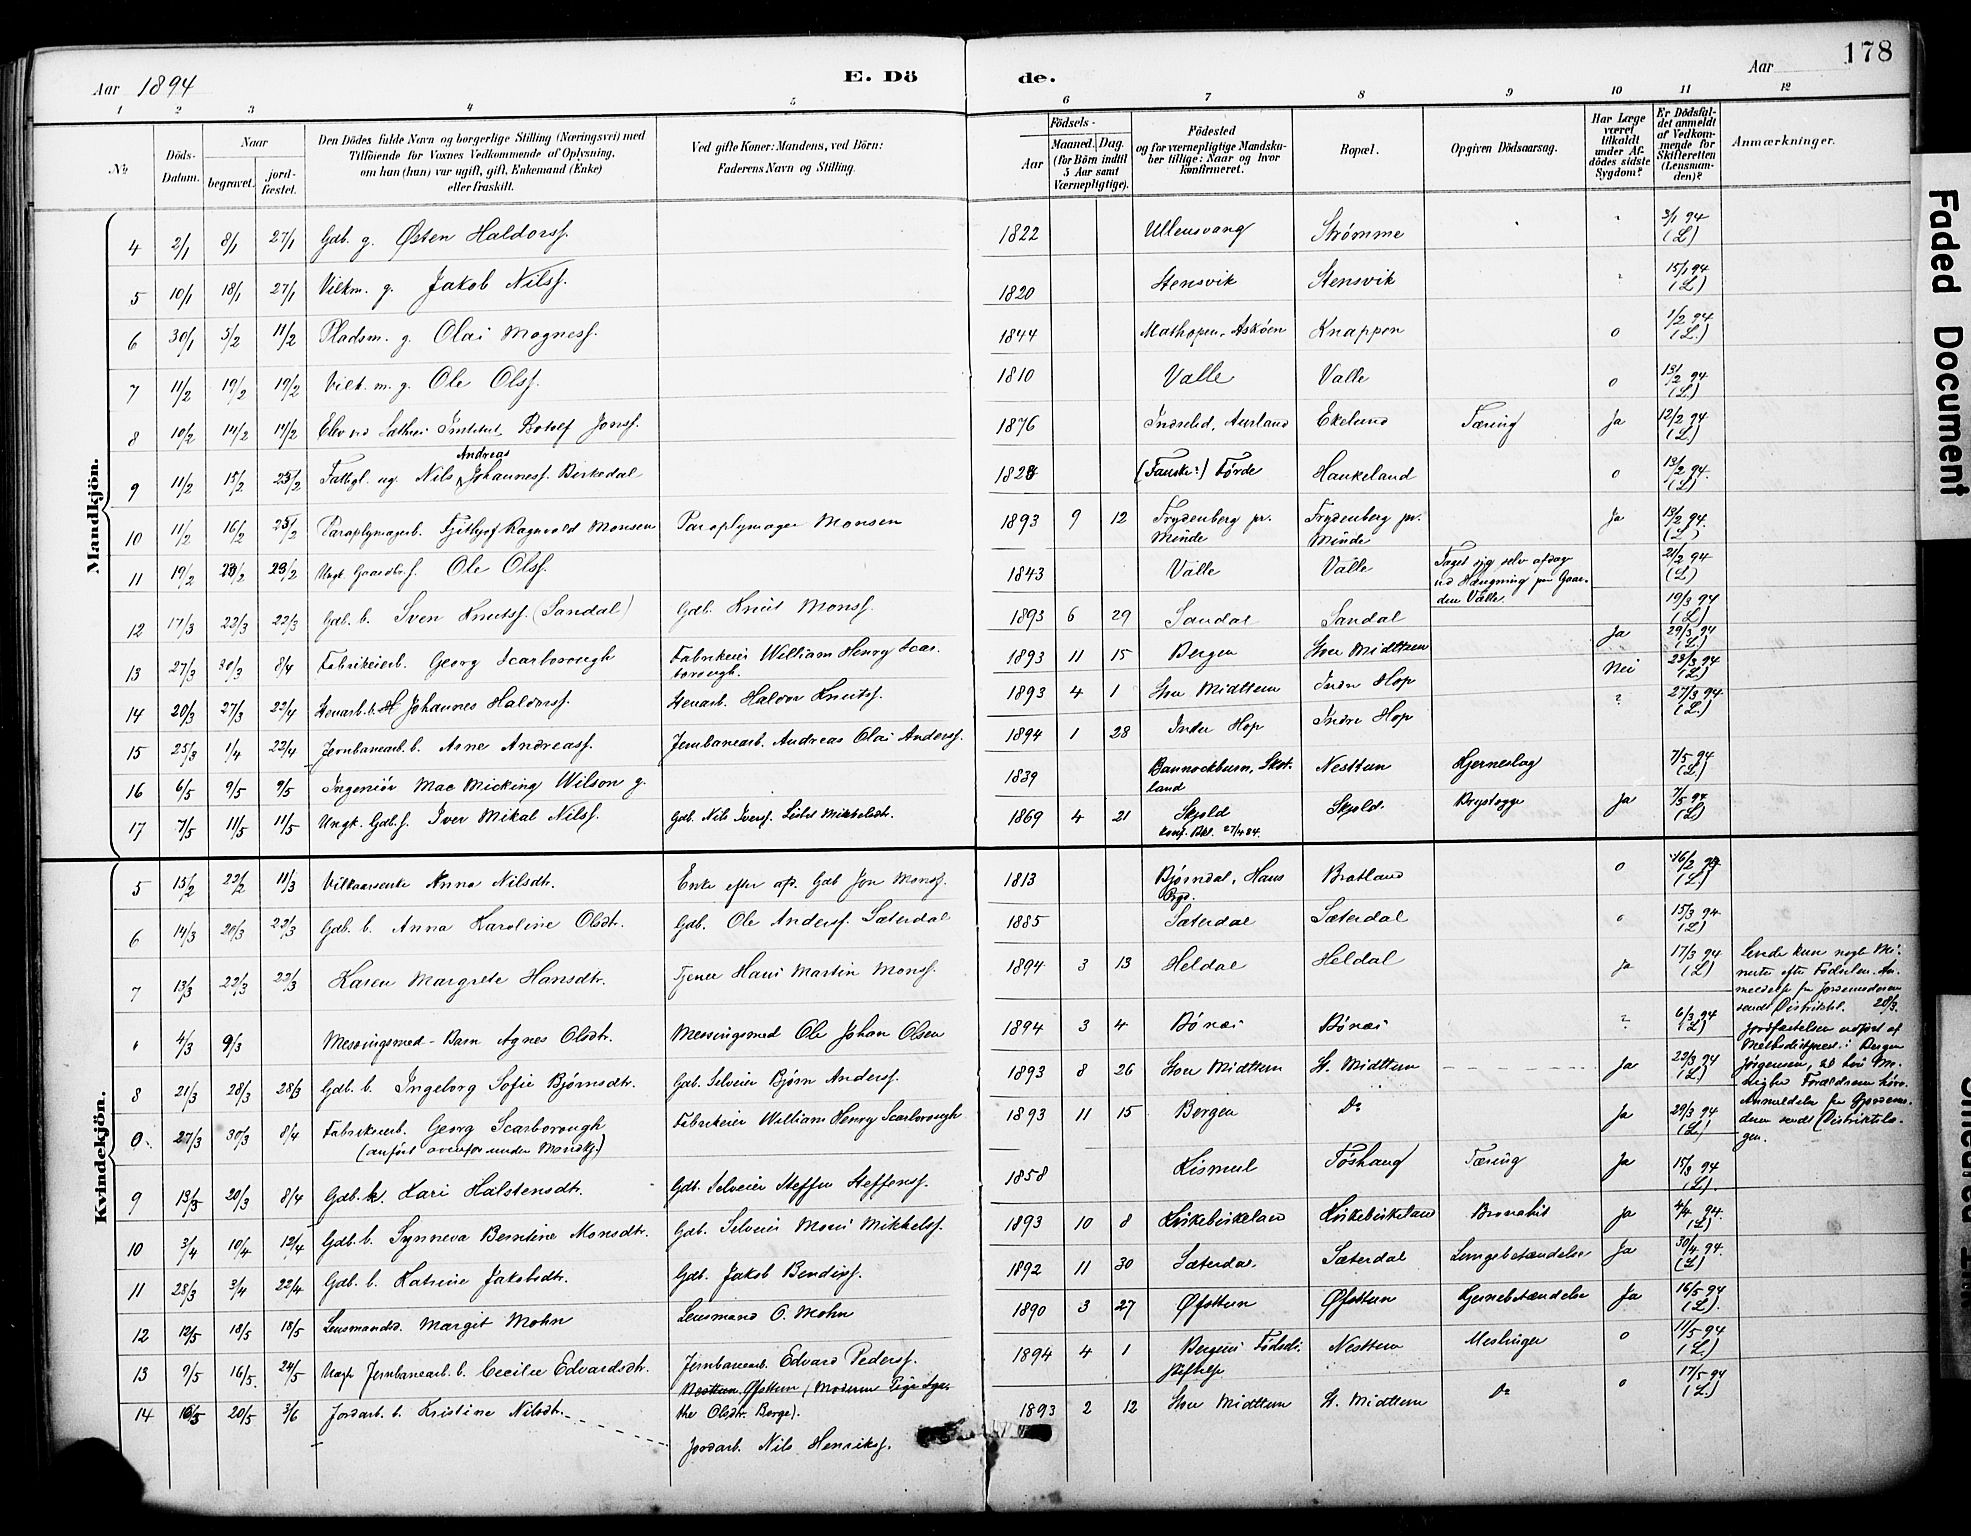 178
Aar 1894
E. Döde.
Aar
1 2 3 4 5 6 7 8 9 10 11 12
No
Döds-Datum.
Naar begravet. jordfæstet.
Den Dödes fulde Navn og borgerlige Stilling (Næringsvei) med Tilföiende for Voxnes Vedkommende af Oplysning, om han (hun) var ugift, gift, Enkemand (Enke) eller fraskilt.
Ved gifte Koner: Mandens, ved Börn: Faderens Navn og Stilling.
Födsels- Aar Maaned. Dag. (for Börn indtil 5 Aar samt Værnepligtige).
Födested og for værnepligtige Mandskaber tillige: Naar og hvor konfirmeret.
Bopæl.
Opgiven Dödsaarsag.
Har Læge været tilkaldt under Afdödes sidste Sygdom?
Er Dödsfaldet anmeldt af Vedkommende for Skifteretten (Lensmanden)?
Anmærkninger.
Mandkjön.
4 2/1 8/1 27/1 Gdb. g. Østen Haldorsf. 1822 Ullensvang Strømme 3/1 94 (L)
5 10/1 18/1 27/1 Vilkm. g. Jakob Nilsf. 1820 Stensvik Stensvik 15/1 94 (L)
6 30/1 5/2 11/2 Pladsm. g. Olai Mognesf. 1844 Mathopen, Askøen Knappen 0 1/2 94 (L.)
7 11/2 19/2 19/2 Vilk. m. g. Ole Olsf. 1810 Valle Valle 0 13/2 94 (L.)
8 10/2 14/2 14/2 Elev ved Sæthres Institut, Botolf Jonsf. 1876 Indrelid, Aurland Ekelund Tæring Ja 12/2 94 (L.)
9 11/2 15/2 25/2 Fattgl. ug. Nils Andreas Johannesf. Birkedal (Fauske?) Førde Haukeland 0 13/2 94. (L)
10 11/2 16/2 25/2 Paraplymagerb. Fritjof Ragnvald Monsen Paraplymager Monsen 1893 9 12 Frydenberg pr. Minde Frydenberg pr. Minde Ja 13/2 94. (L)
11 19/2 23/2 23/2 Ungk. Gaardbr.f. Ole Olsf. 1843 Valle Valle Taget sig selv afdage ved Hængning paa Gaarden Valle. 21/2 94 (L)
12 17/3 22/3 22/3 Gdb. b. Sven Knutsf. (Sandal) Gdb. Knut Monsf. 1893 6 29 Sandal Sandal Ja 19/3 94 (L)
13 27/3 30/3 8/4 Fabrikeierb. Georg Scarborough Fabrikeier William Henry Scarborough. 1893 11 15 Bergen Store Midttun Nei 29/3 94 (L)
14 20/3 27/3 22/4 Stenarb. b. Johannes Haldorsf. Stenarb. Haldor Knutsf. 1893 4 1 Store Midttun Indre Hop ? 23/3 94 (L)
15 25/3 1/4 22/4 Jernbanearb. b. Arne Andreasf. Jernbanearb. Andreas Olai Andersf. 1894 1 28 Indre Hop Indre Hop 27/3 94. (L.)
16 6/5 9/5 9/5 Ingeniör Mac Micking Wilson g. 1839 Bannockburn, Skotland Nesttun Hjerneslag 7/5 94 (L)
17 7/5 11/5 11/5 Ungk. Gdb.f. Iver Mikal Nilsf. Gdb. Nils Iversf. Lisbet Mikkelsdtr. 1869 4 21 Skjold konf. Bkl. 27/4 84. Skjold. Brystsyge Ja 7/5 94 (L)
Kvindekjön.
5 15/2 22/2 11/3 Vilkaarsenke Anna Nilsdtr. Enke efter afd. Gdb Jon Monsf. 1813 Bjørndal, Haus Pgd. Bratland 0 16/2 94 (L)
6 14/3 20/3 22/3 Gdb. b. Anna Karoline Olsdtr. Gdb. Ole Andersf. Sæterdal 1885 Sæterdal Sæterdal 0 15/3 94. (L)
7 13/3 22/3 22/3 Karen Margrete Hansdtr. Tjener Hans Martin Monsf. 1894 3 13 Heldal Heldal Ja 17/3 94 (L) Levede kun nogle Minuter efter Fødselen. Anmeldelse fra Jordemoderen sendt Distriktsl. 28/3.
4/3 9/3 Messingsmed-Barn Agnes Olsdtr. Messingsmed Ole Johan Olsen 1894 3 4 Bönæs Bönæs ? 6/3 94 (L) Jordfæstelsen udført af Methodistpræst i Bergen Jörgensen, til hvis Menighed Forældrene hører. Anmeldelse fra Gjordemoderen sendt Distriktslægen.
8 21/3 28/3 28/3 Gdb. b. Ingeborg Sofie Bjørnsdtr. Gdb. Selveier Bjørn Andersf. 1893 8 26 Store Midttun St. Midttun Ja 22/3 94 (L.)
0. 27/3 30/3 8/4 Fabrikeierb. Georg Scarborough (anført ovenfor under Mandkj.) Fabrikeier William Henry Scarborough 1893 11 15 Bergen Do Ja 29/3 94 (L.)
9 13/3 20/3 8/4 Gdb. k. Kari Halstensdtr. Gdb. Selveier Steffen Steffensf. 1858 Kismul Töshaug Tæring Ja 15/3 94 (L).
10 3/4 10/4 12/4 Gdb. b. Synneva Berntine Monsdtr. Gdb. Selveier Mons Mikkelsf. 1893 10 8 Kirkebirkeland Kirkebirkeland Bronchit Ja 4/4 94. (L)
11 28/3 3/4 22/4 Gdb. b. Katrine Jakobsdtr. Gdb. Jakob Bendixf. 1892 11 30 Sæterdal Sæterdal Lungebetændelse Ja 30/4 94. (L)
12 12/5 18/5 18/5 Lensmandsd. Margit Mohn Lensmand O. Mohn 1890 3 27 Øfsttun Øfsttun Hjernebetændelse Ja 16/5 94 (L).
13 9/5 16/5. 24/5 Uægt. Jernbanearb. b. Cecilie Edvardsdtr. Jernbanearb. Edvard Pedersf. Nesttun Øfsttun (Moderen Pige Agathe Olsdtr. Berge). 1894 4 1 Bergens Födselsstiftelse Nesttun Meslinger 0 11/5 94 (L.)
14 16/5 20/5 3/6 Jordarb. b. Kristine Nilsdtr. Jordarb. Nils Henriksf. 1893 2 12 Store Midttun St. Midttun Do 0 17/5 94 (L.)
Faded Document